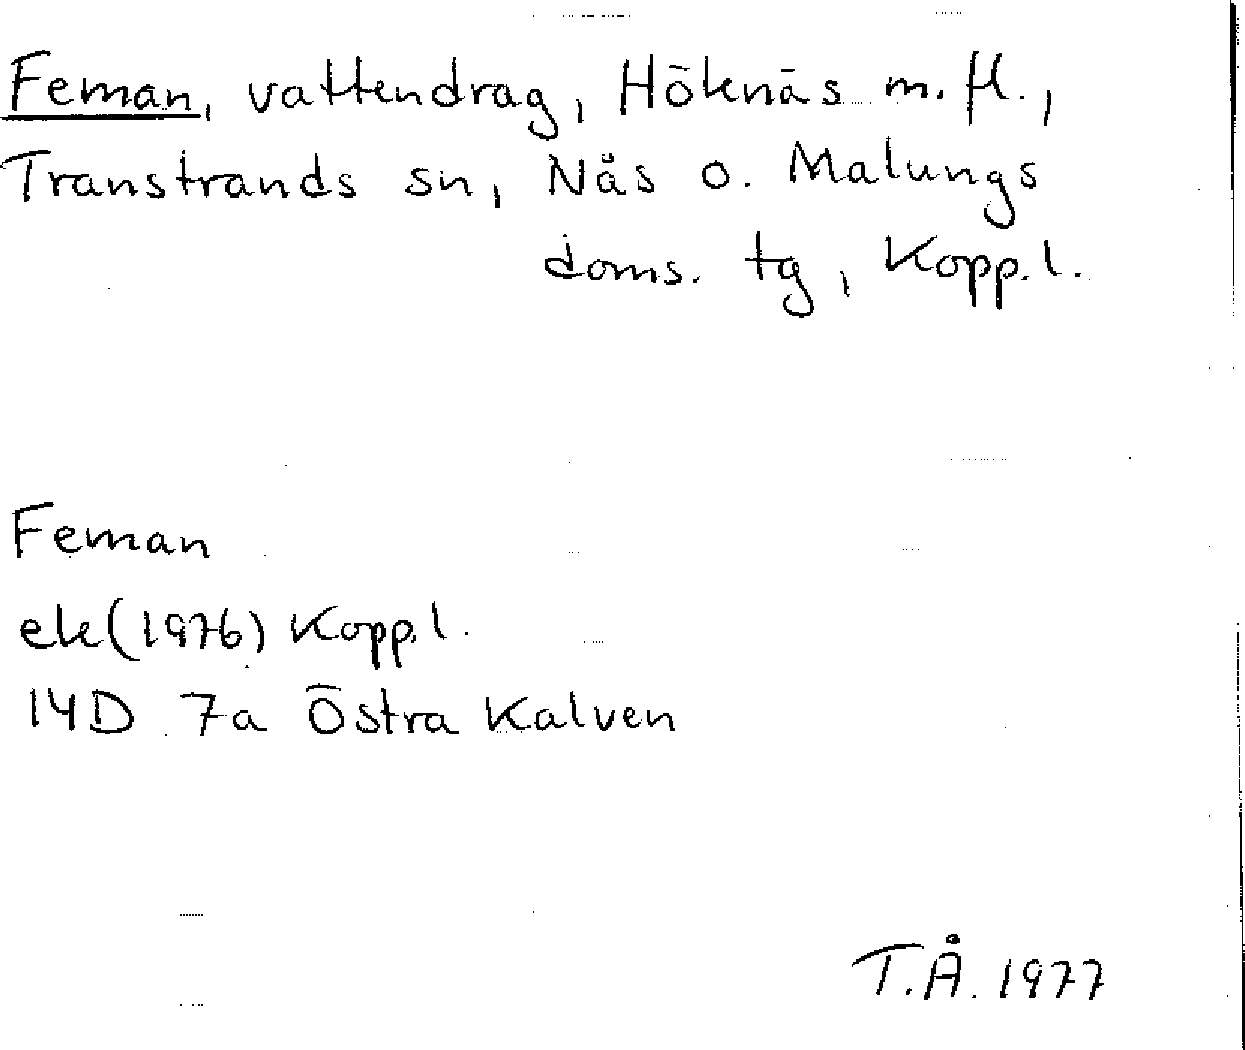 Feman, vattendrag, Höknäs m. fl.,
Transtrands sn, Nås o. Malungs
doms. tg, Kopp. l.
Feman
ek (1976) Kopp. l.
14D 7a Östra Kalven
T.Å. 1977